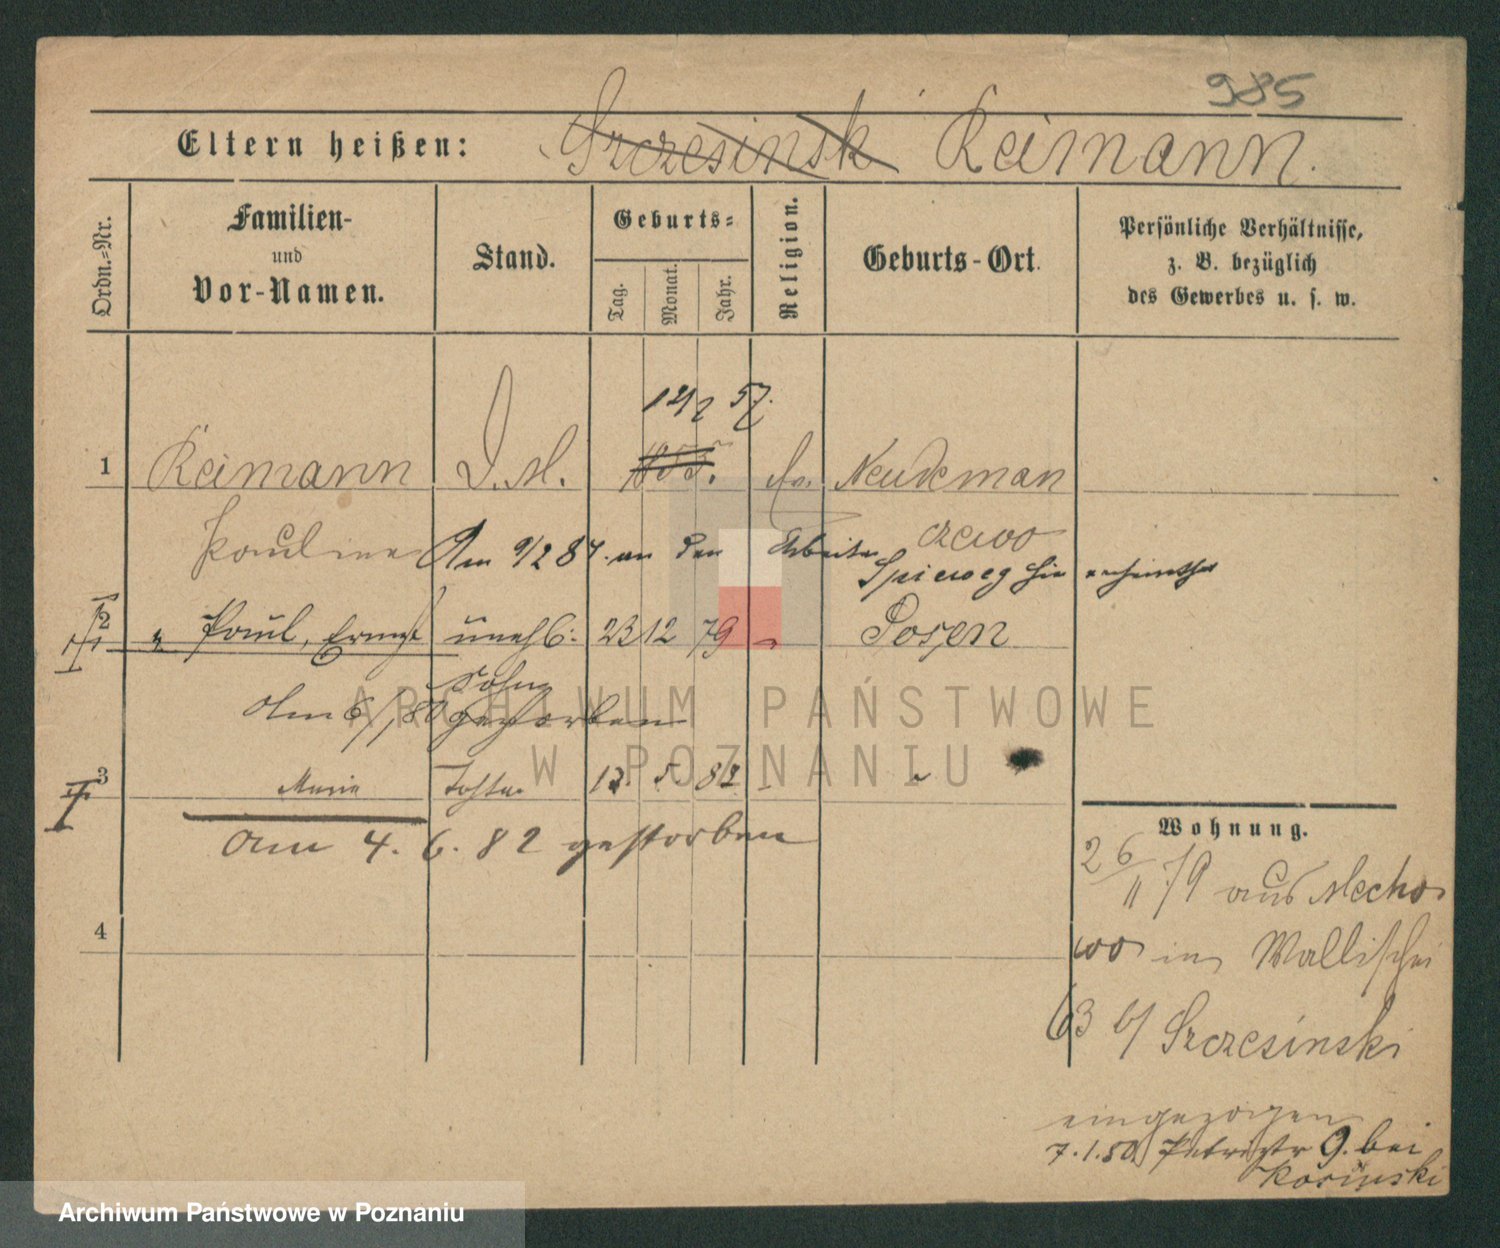 985
Eltern heißen: Szczesinsk Reimann.
Ordn.-Nr.
Familien-
und
Vor-Namen.
Stand.
Geburts-
Tag.
Monat.
Jahr.
Religion.
Geburts-Ort.
Persönliche Verhältnisse,
z. B. bezüglich
des Gewerbes u. s. w.
12/2 57.
1 Reimann D. M. 1855. Neudeman
czewo
Pauline Am 9/2 84 an den Arbeiter
Spieweg hier verheirathet
2 " Paul, Ernst unehl. 23 12 79 " Posen
Sohn
Am 6/1 80 gestorben
3 Maria Tochter 13. 5. 82 "
am 4. 6. 82 gestorben
4
Wohnung.
26/11 79 aus Mecho
wo in Wallischei
63 b/ Szczesinski
eingezogen
7.1.80 Petristr 9. bei
Kosinski
ARCHIWUM PAŃSTWOWE
W POZNANIU
Archiwum Państwowe w Poznaniu